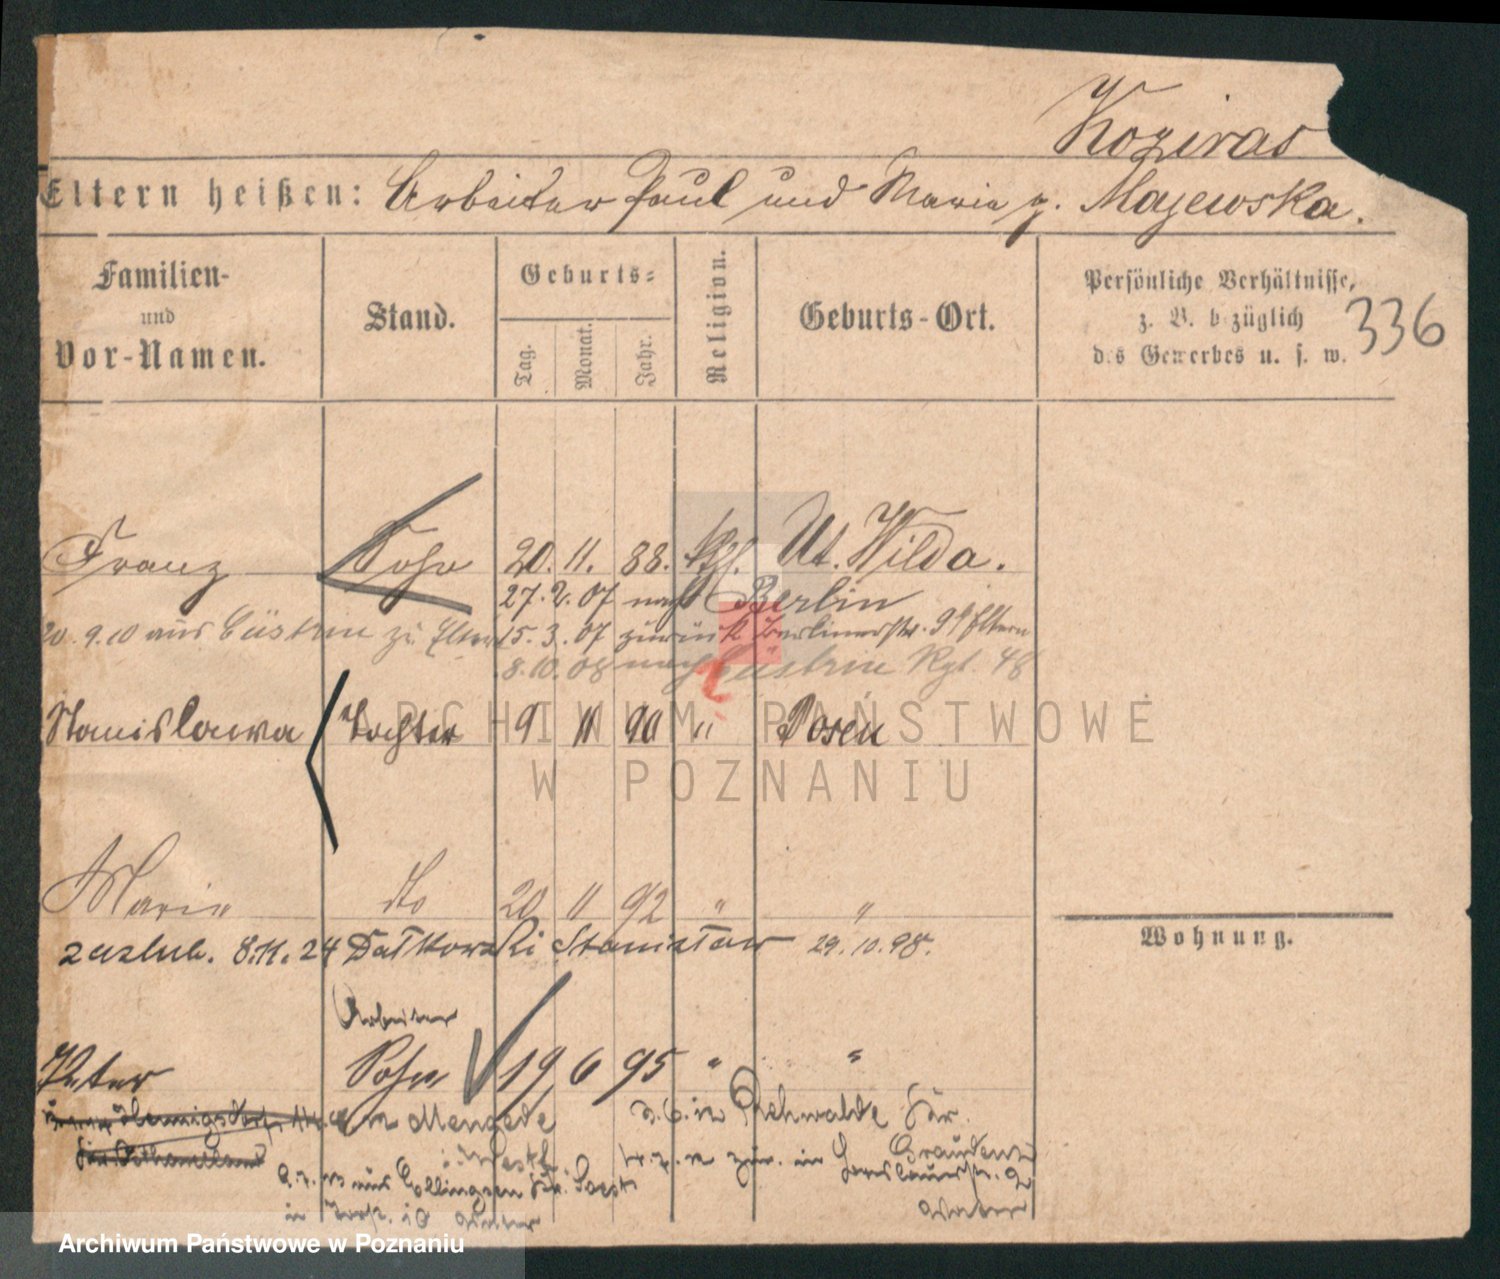 Koziras
Eltern heißen: Arbeiter Paul und Maria g. Majewska.
Familien-
und
Vor-Namen.
Stand.
Geburts-
Tag.
Monat.
Jahr.
Religion.
Geburts-Ort.
Persönliche Verhältnisse,
z. B. bezüglich
des Gewerbes u. s. w.
336
Franz Sohn 20. 11. 88. kth. Ut. Wilda.
27. 2. 07 nach Berlin
20. 9. 10 aus Cüstrin zu Eltern 15. 3. 07 zurück Berlinerstr. Eltern
8. 10. 08 nach Cüstrin Rgt. 48
Stanislawa Tochter 9 11 90 " Posen
ARCHIWUM PAŃSTWOWE
W POZNANIU
Maria dto 20 11 92 " "
zaslub. 8.11.24 Datkowski Stanisław 29. 10. 98.
Wohnung.
Arbeiter
Peter Sohn 19 6 95 " "
in Mengede in Richwalde Kr.
i. Westf. Graudenz
aus Kr. Soest zur. in
Archiwum Państwowe w Poznaniu